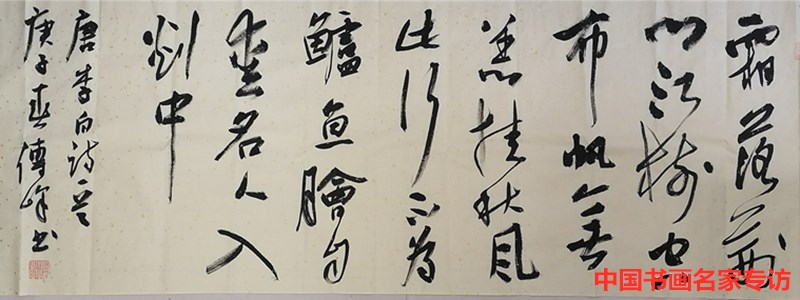 霜落荆
门江树空
布帆無
恙挂秋風
此行不为
鱸魚膾自
爱名人入
剡中
唐李白詩一首
庚子春傅峰书
中国书画名家专访